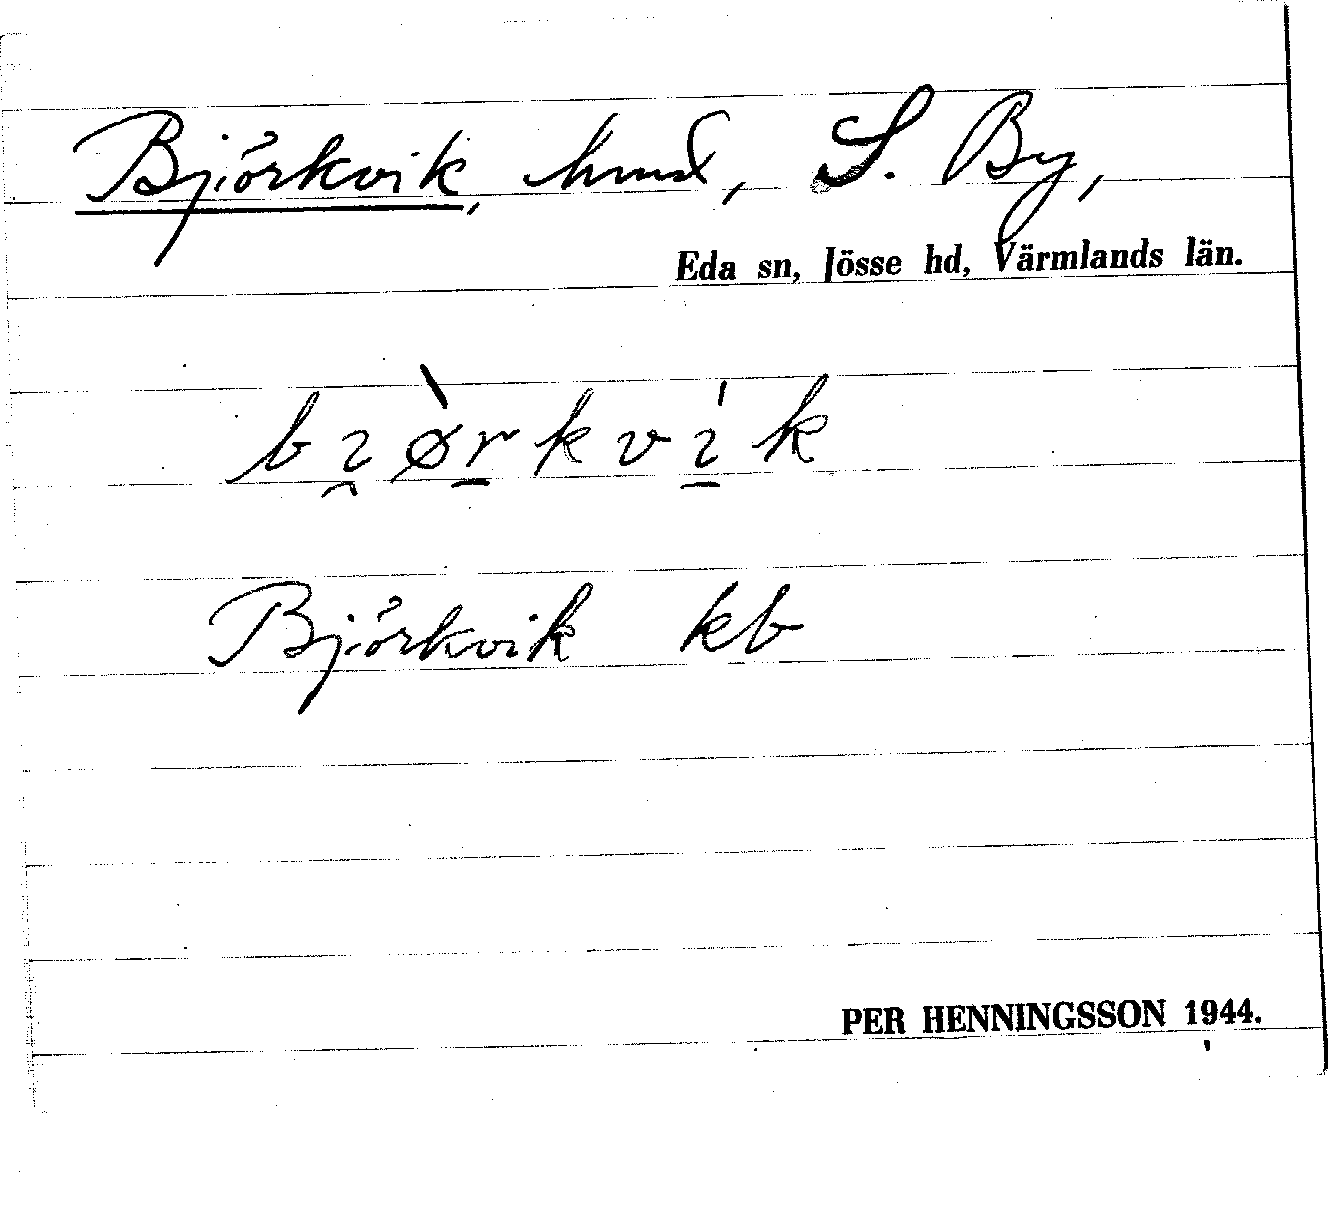 Björkvik, hmd, S. By,
Eda sn, Jösse hd, Värmlands län.
bı̯ø̀r̲kvı̲́k
Björkvik kb
PER HENNINGSSON 1944.